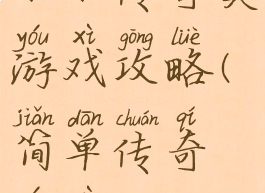 yóu xì gōng lüè
游戏攻略(
jiǎn dān chuán qí
简单传奇